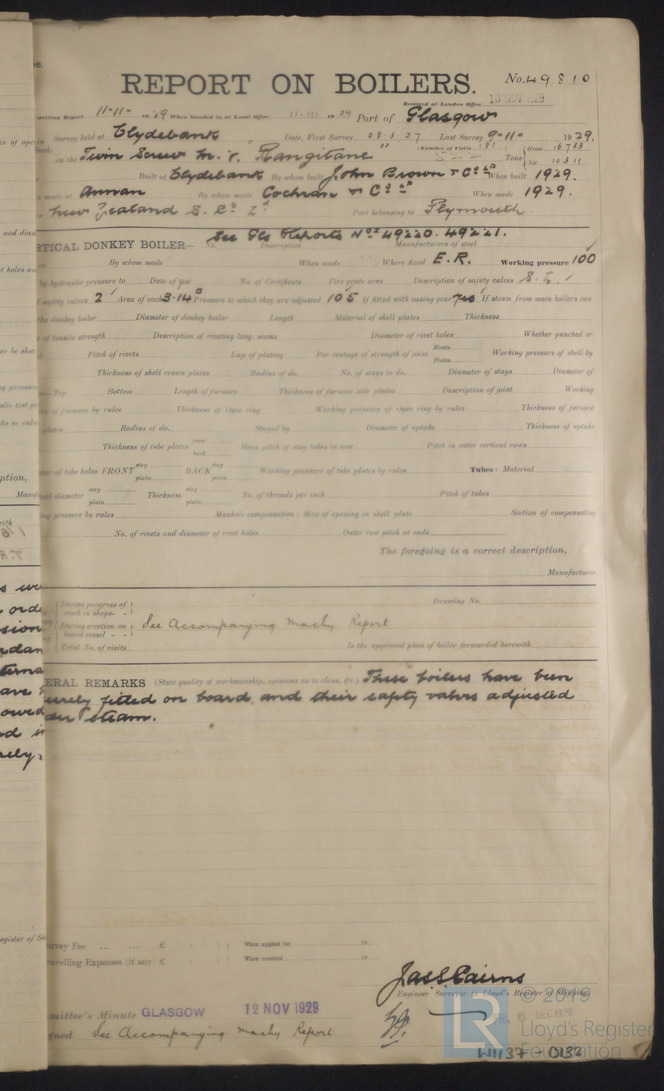 REPORT ON BOILERS.
No. 49810
Received at London Office 13 NOV 1929
writing Report 11-11- 1929 When handed in at Local Office 11-11- 1929 Port of Glasgow
Survey held at Clydebank Date, First Survey 28.3.27 Last Survey 9-11- 1929.
on the Twin Screw M.V. "Rangitane" (Number of Visits) Tons Gross 16733 Net 10311
Built at Clydebank By whom built John Brown & Co Ld When built 1929.
made at Annan By whom made Cochran & Co Ld When made 1929.
New Zealand S. Co Ld Port belonging to Plymouth
See Gls Reports Nos 49220. 49221.
RTICAL DONKEY BOILER— No. Description Manufacturers of steel
By whom made When made Where fixed E.R. Working pressure 100
by hydraulic pressure to Date of test No. of Certificate Fire grate area Description of safety valves S.L.
safety valves 2 Area of each 3.14 Pressure to which they are adjusted 105 If fitted with easing gear yes If steam from main boilers can
the donkey boiler Diameter of donkey boiler Length Material of shell plates Thickness
of tensile strength Description of riveting long. seams Diameter of rivet holes Whether punched or
Pitch of rivets Lap of plating Per centage of strength of joint Rivets Plates Working pressure of shell by
Thickness of shell crown plates Radius of do. No. of stays to do. Diameter of stays Diameter of
—Top Bottom Length of furnace Thickness of furnace side plates Description of joint Working
of furnace by rules Thickness of Ogee ring Working pressure of Ogee ring by rules Thickness of furnace
plates Radius of do. Stayed by Diameter of uptake Thickness of uptake
Thickness of tube plates front back Mean pitch of stay tubes in nest Pitch in outer vertical rows
of tube holes FRONT stay plain BACK stay plain Working pressure of tube plates by rules Tubes: Material
diameter stay plain Thickness stay plain No. of threads per inch Pitch of tubes
pressure by rules Manhole compensation: Size of opening in shell plate Section of compensating
No. of rivets and diameter of rivet holes Outer row pitch at ends
The foregoing is a correct description,
Manufacturer.
During progress of work in shops - - Drawing No.
During erection on board vessel - - See Accompanying Machy Report
Total No. of visits Is the approved plan of boiler forwarded herewith
ERAL REMARKS (State quality of workmanship, opinions as to class, &c.) These boilers have been
urely fitted on board, and their safety valves adjusted
der steam.
urvey Fee ... ... £ : : When applied for 19
avelling Expenses (if any) £ : : When received 19
Jas S Cairns
Engineer Surveyor to Lloyd's Register of Shipping.
mittee's Minute GLASGOW 12 NOV 1929
gned See Accompanying Machy Report
© 2019
LR Lloyd's Register Foundation
W1137 0132